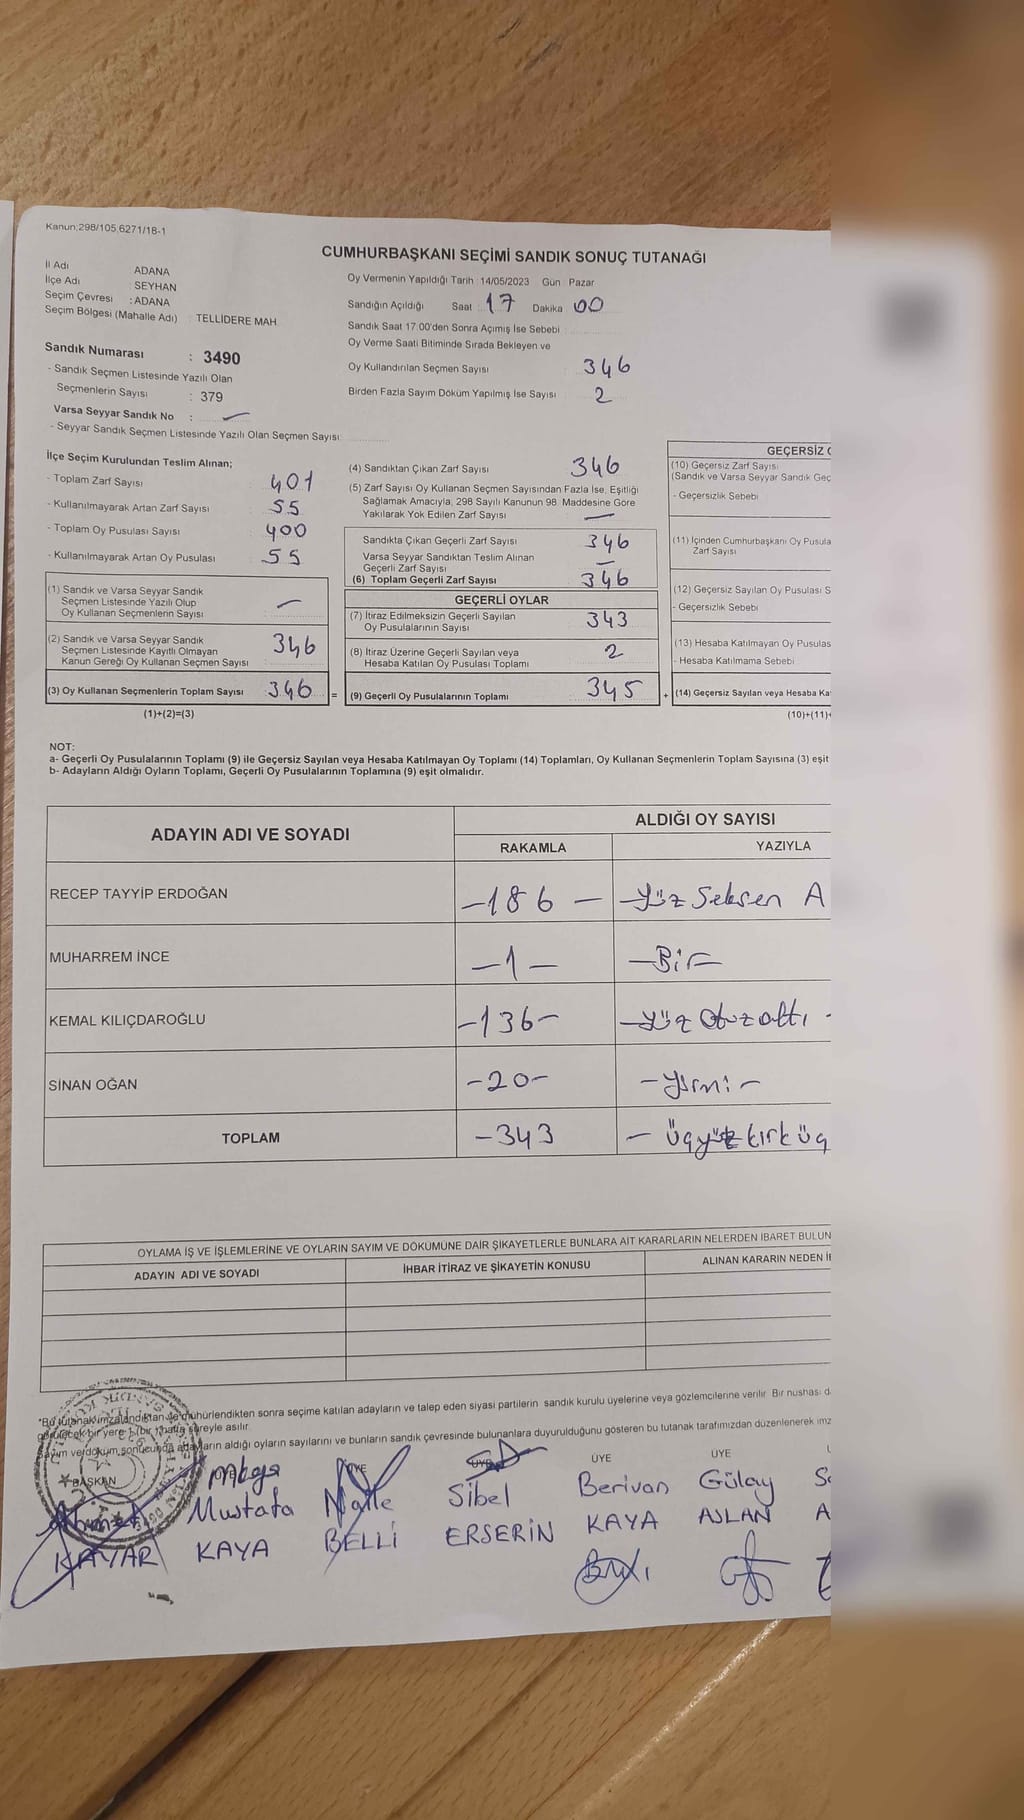 Kanun:298/105,6271/18-1
CUMHURBAŞKANI SEÇİMİ SANDIK SONUÇ TUTANAĞI
İl Adı ADANA
İlçe Adı : SEYHAN
Seçim Çevresi : ADANA
Seçim Bölgesi (Mahalle Adı) : TELLİDERE MAH.
Oy Vermenin Yapıldığı Tarih : 14/05/2023 Gün : Pazar
Sandığın Açıldığı Saat : 17 Dakika 00
Sandık Saat 17:00'den Sonra Açımış İse Sebebi
Oy Verme Saati Bitiminde Sırada Bekleyen ve
Oy Kullandırılan Seçmen Sayısı 346
Birden Fazla Sayım Döküm Yapılmış İse Sayısı 2
Sandık Numarası : 3490
- Sandık Seçmen Listesinde Yazılı Olan
Seçmenlerin Sayısı : 379
Varsa Seyyar Sandık No : —
- Seyyar Sandık Seçmen Listesinde Yazılı Olan Seçmen Sayısı:
İlçe Seçim Kurulundan Teslim Alınan;
- Toplam Zarf Sayısı 401
- Kullanılmayarak Artan Zarf Sayısı 55
- Toplam Oy Pusulası Sayısı 400
- Kullanılmayarak Artan Oy Pusulası 55
(1) Sandık ve Varsa Seyyar Sandık
Seçmen Listesinde Yazılı Olup
Oy Kullanan Seçmenlerin Sayısı —
(2) Sandık ve Varsa Seyyar Sandık
Seçmen Listesinde Kayıtlı Olmayan
Kanun Gereği Oy Kullanan Seçmen Sayısı 346
(3) Oy Kullanan Seçmenlerin Toplam Sayısı 346 =
(1)+(2)=(3)
(4) Sandıktan Çıkan Zarf Sayısı 346
(5) Zarf Sayısı Oy Kullanan Seçmen Sayısından Fazla İse, Eşitliği
Sağlamak Amacıyla, 298 Sayılı Kanunun 98. Maddesine Göre
Yakılarak Yok Edilen Zarf Sayısı —
Sandıkta Çıkan Geçerli Zarf Sayısı 346
Varsa Seyyar Sandıktan Teslim Alınan
Geçerli Zarf Sayısı —
(6) Toplam Geçerli Zarf Sayısı 346
GEÇERLİ OYLAR
(7) İtiraz Edilmeksizin Geçerli Sayılan
Oy Pusulalarının Sayısı 343
(8) İtiraz Üzerine Geçerli Sayılan veya
Hesaba Katılan Oy Pusulası Toplamı 2
(9) Geçerli Oy Pusulalarının Toplamı 345 +
GEÇERSİZ
(10) Geçersiz Zarf Sayısı
(Sandık ve Varsa Seyyar Sandık Geç
- Geçersizlik Sebebi
(11) İçinden Cumhurbaşkanı Oy Pusula
Zarf Sayısı
(12) Geçersiz Sayılan Oy Pusulası S
- Geçersizlik Sebebi
(13) Hesaba Katılmayan Oy Pusulas
- Hesaba Katılmama Sebebi
(14) Geçersiz Sayılan veya Hesaba Ka
(10)+(11)+
NOT:
a- Geçerli Oy Pusulalarının Toplamı (9) ile Geçersiz Sayılan veya Hesaba Katılmayan Oy Toplamı (14) Toplamları, Oy Kullanan Seçmenlerin Toplam Sayısına (3) eşit
b- Adayların Aldığı Oyların Toplamı, Geçerli Oy Pusulalarının Toplamına (9) eşit olmalıdır.
ADAYIN ADI VE SOYADI ALDIĞI OY SAYISI
RAKAMLA YAZIYLA
RECEP TAYYİP ERDOĞAN -186- -Yüz Seksen A
MUHARREM İNCE -1- -Bir-
KEMAL KILIÇDAROĞLU -136- -Yüz Otuz altı -
SİNAN OĞAN -20- -Yirmi-
TOPLAM -343 - üçyüz kırk üç
OYLAMA İŞ VE İŞLEMLERİNE VE OYLARIN SAYIM VE DÖKÜMÜNE DAİR ŞİKAYETLERLE BUNLARA AİT KARARLARIN NELERDEN İBARET BULUN
ADAYIN ADI VE SOYADI İHBAR İTİRAZ VE ŞİKAYETİN KONUSU ALINAN KARARIN NEDEN İ
*Bu tutanak imzalandıktan ve mühürlendikten sonra seçime katılan adayların ve talep eden siyasi partilerin sandık kurulu üyelerine veya gözlemcilerine verilir. Bir nüshası d
görülecek bir yere 1 (bir) hafta süreyle asılır.
Sayım ve döküm sonucunda adayların aldığı oyların sayılarını ve bunların sandık çevresinde bulunanlara duyurulduğunu gösteren bu tutanak tarafımızdan düzenlenerek imz
BAŞKAN ÜYE ÜYE ÜYE ÜYE ÜYE
Ahmet Mustafa Naile Sibel Berivan Gülay
KAYAR KAYA BELLİ ERSERİN KAYA ASLAN A